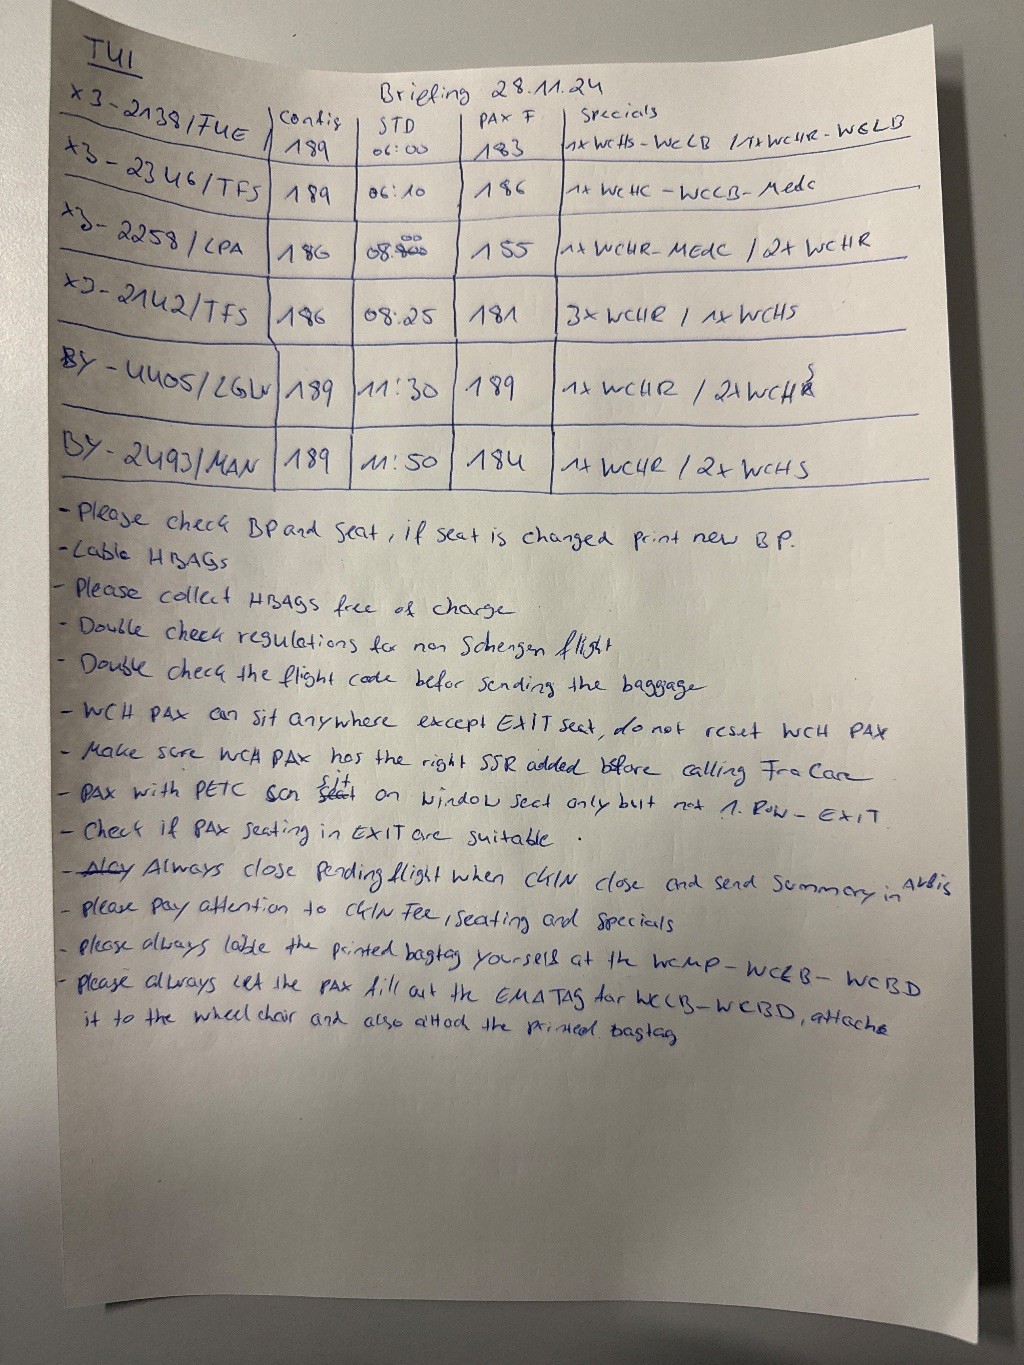 TUI
Briefing 28.11.24
Config STD PAX F Specials
X3-2138/FUE 189 06:00 183 1x WCHS-WCLB / 1x WCHR-WCLB
X3-2346/TFS 189 06:10 186 1x WCHC-WCLB-Meda
X3-2258/LPA 186 08:00 155 1x WCHR-MEDC / 2x WCHR
X3-2142/TFS 186 08:25 181 3x WCHR / 1x WCHS
BY-4405/LGW 189 11:30 189 1x WCHR / 2x WCHS
BY-2493/MAN 189 11:50 184 1x WCHR / 2x WCHS
- Please check BP and seat, if seat is changed print new BP.
- Lable HBAGs
- Please collect HBAGs free of charge
- Double check regulations for non Schengen flight
- Double check the flight code befor sending the baggage
- WCH PAX can sit anywhere except EXIT seat, do not reset WCH PAX
- Make sure WCH PAX has the right SSR added before calling FraCare
- PAX with PETC can sit on window seat only but not 1. Row - EXIT
- Check if PAX seating in EXIT are suitable.
- Always close pending flight when CKIN close and send Summary in
- Please pay attention to CKIN Fee, seating and specials
- please always lable the printed bagtag yourself at the WCMP-WCLB-WCBD
- please always let the PAX fill out the EMA TAG for WCLB-WCBD, attach
it to the wheelchair and also attach the printed bagtag